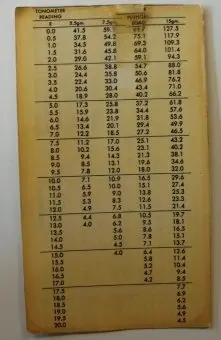 TONOMETER
READING PLUNGER LOAD
R 5.5gm. 7.5gm. 10gm. 15gm.
0.0 41.5 59.1 127.5
0.5 37.8 54.2 75.1 117.9
1.0 34.5 49.8 69.3 109.3
1.5 31.6 45.8 64.0 101.4
2.0 29.0 42.1 59.1 94.3
2.5 26.6 38.8 54.7 88.0
3.0 24.4 35.8 50.6 81.8
3.5 22.4 33.0 46.9 76.2
4.0 20.6 30.4 43.4 71.0
4.5 18.9 28.0 40.2 66.2
5.0 17.3 25.8 37.2 61.8
5.5 15.9 23.8 34.4 57.6
6.0 14.6 21.9 31.8 53.6
6.5 13.4 20.1 29.4 49.9
7.0 12.2 18.5 27.2 46.5
7.5 11.2 17.0 25.1 43.2
8.0 10.2 15.6 23.1 40.2
8.5 9.4 14.3 21.3 38.1
9.0 8.5 13.1 19.6 34.6
9.5 7.8 12.0 18.0 32.0
10.0 7.1 10.9 16.5 29.6
10.5 6.5 10.0 15.1 27.4
11.0 5.9 9.0 13.8 25.3
11.5 5.3 8.3 12.6 23.3
12.0 4.9 7.5 11.5 21.4
12.5 4.4 6.8 10.5 19.7
13.0 4.0 6.2 9.5 18.1
13.5 5.6 8.6 16.5
14.0 5.0 7.8 15.1
14.5 4.5 7.1 13.7
15.0 4.0 6.4 12.6
15.5 5.8 11.4
16.0 5.2 10.4
16.5 4.7 9.4
17.0 4.2 8.5
17.5 7.7
18.0 6.9
18.5 6.2
19.0 5.6
19.5 4.9
20.0 4.5